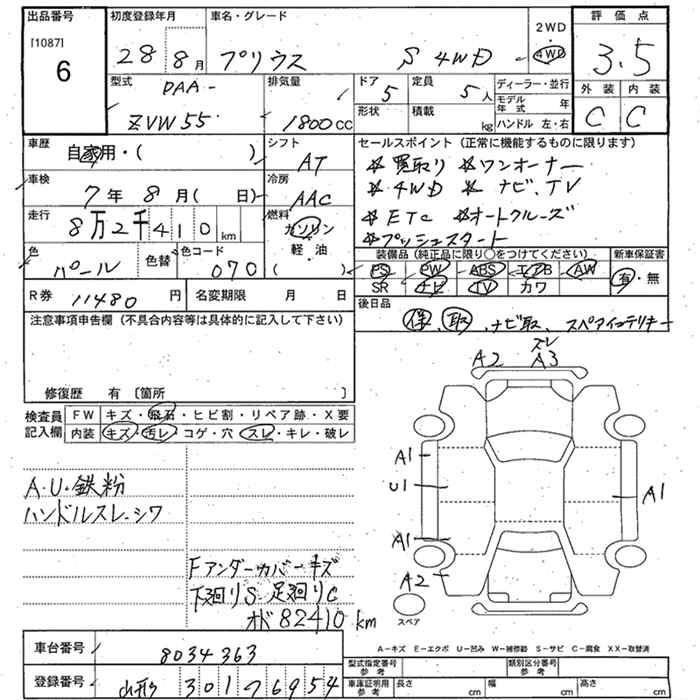 出品番号 初度登録年月 車名・グレード 2WD・4WD 評価点
[1087] 6 28年 8月 プリウス S 4WD 3.5
型式 DAA- ZVW55 排気量 1800cc ドア 5 定員 5人 ディーラー・並行 外装 内装
形状 積載 kg モデル年式 年 ハンドル 左・右 C C
車歴 自家用・( ) シフト AT セールスポイント (正常に機能するものに限ります)
☆買取り ☆ワンオーナー
車検 7年 8月( 日) 冷房 AAC ☆4WD ☆ナビ、TV
走行 8万2千410km 燃料 ガソリン 軽油 ( ) ☆ETC ☆オートクルーズ
☆プッシュスタート
色 パール 色替 色コード 070 装備品 (純正品に限り○をつけてください) 新車保証書
PS PW ABS エアB AW 有・無
SR ナビ TV カワ
R券 11480円 名変期限 月 日 後日品
保、取、ナビ取、スペアインテリキー
注意事項申告欄 (不具合内容等は具体的に記入して下さい)
修復歴 有 〔箇所 〕
検査員記入欄 FW キズ・飛石・ヒビ割・リペア跡・X要
内装 キズ・汚レ・コゲ・穴・スレ・キレ・破レ
A2 スレ A3
A1
U1
A1
A1
A2
スペア
A・U・鉄粉
ハンドルスレ-シワ
Fアンダーカバーキズ
下廻りS 足廻りC
オド82410km
A-キズ E-エクボ U-凹み W-補修跡 S-サビ C-腐食 XX-取替済
車台番号 8034363
型式指定番号 参考 類別区分番号 参考
登録番号 山形 301 ツ 6954
車庫証明用 参考 長さ cm 幅 cm 高さ cm